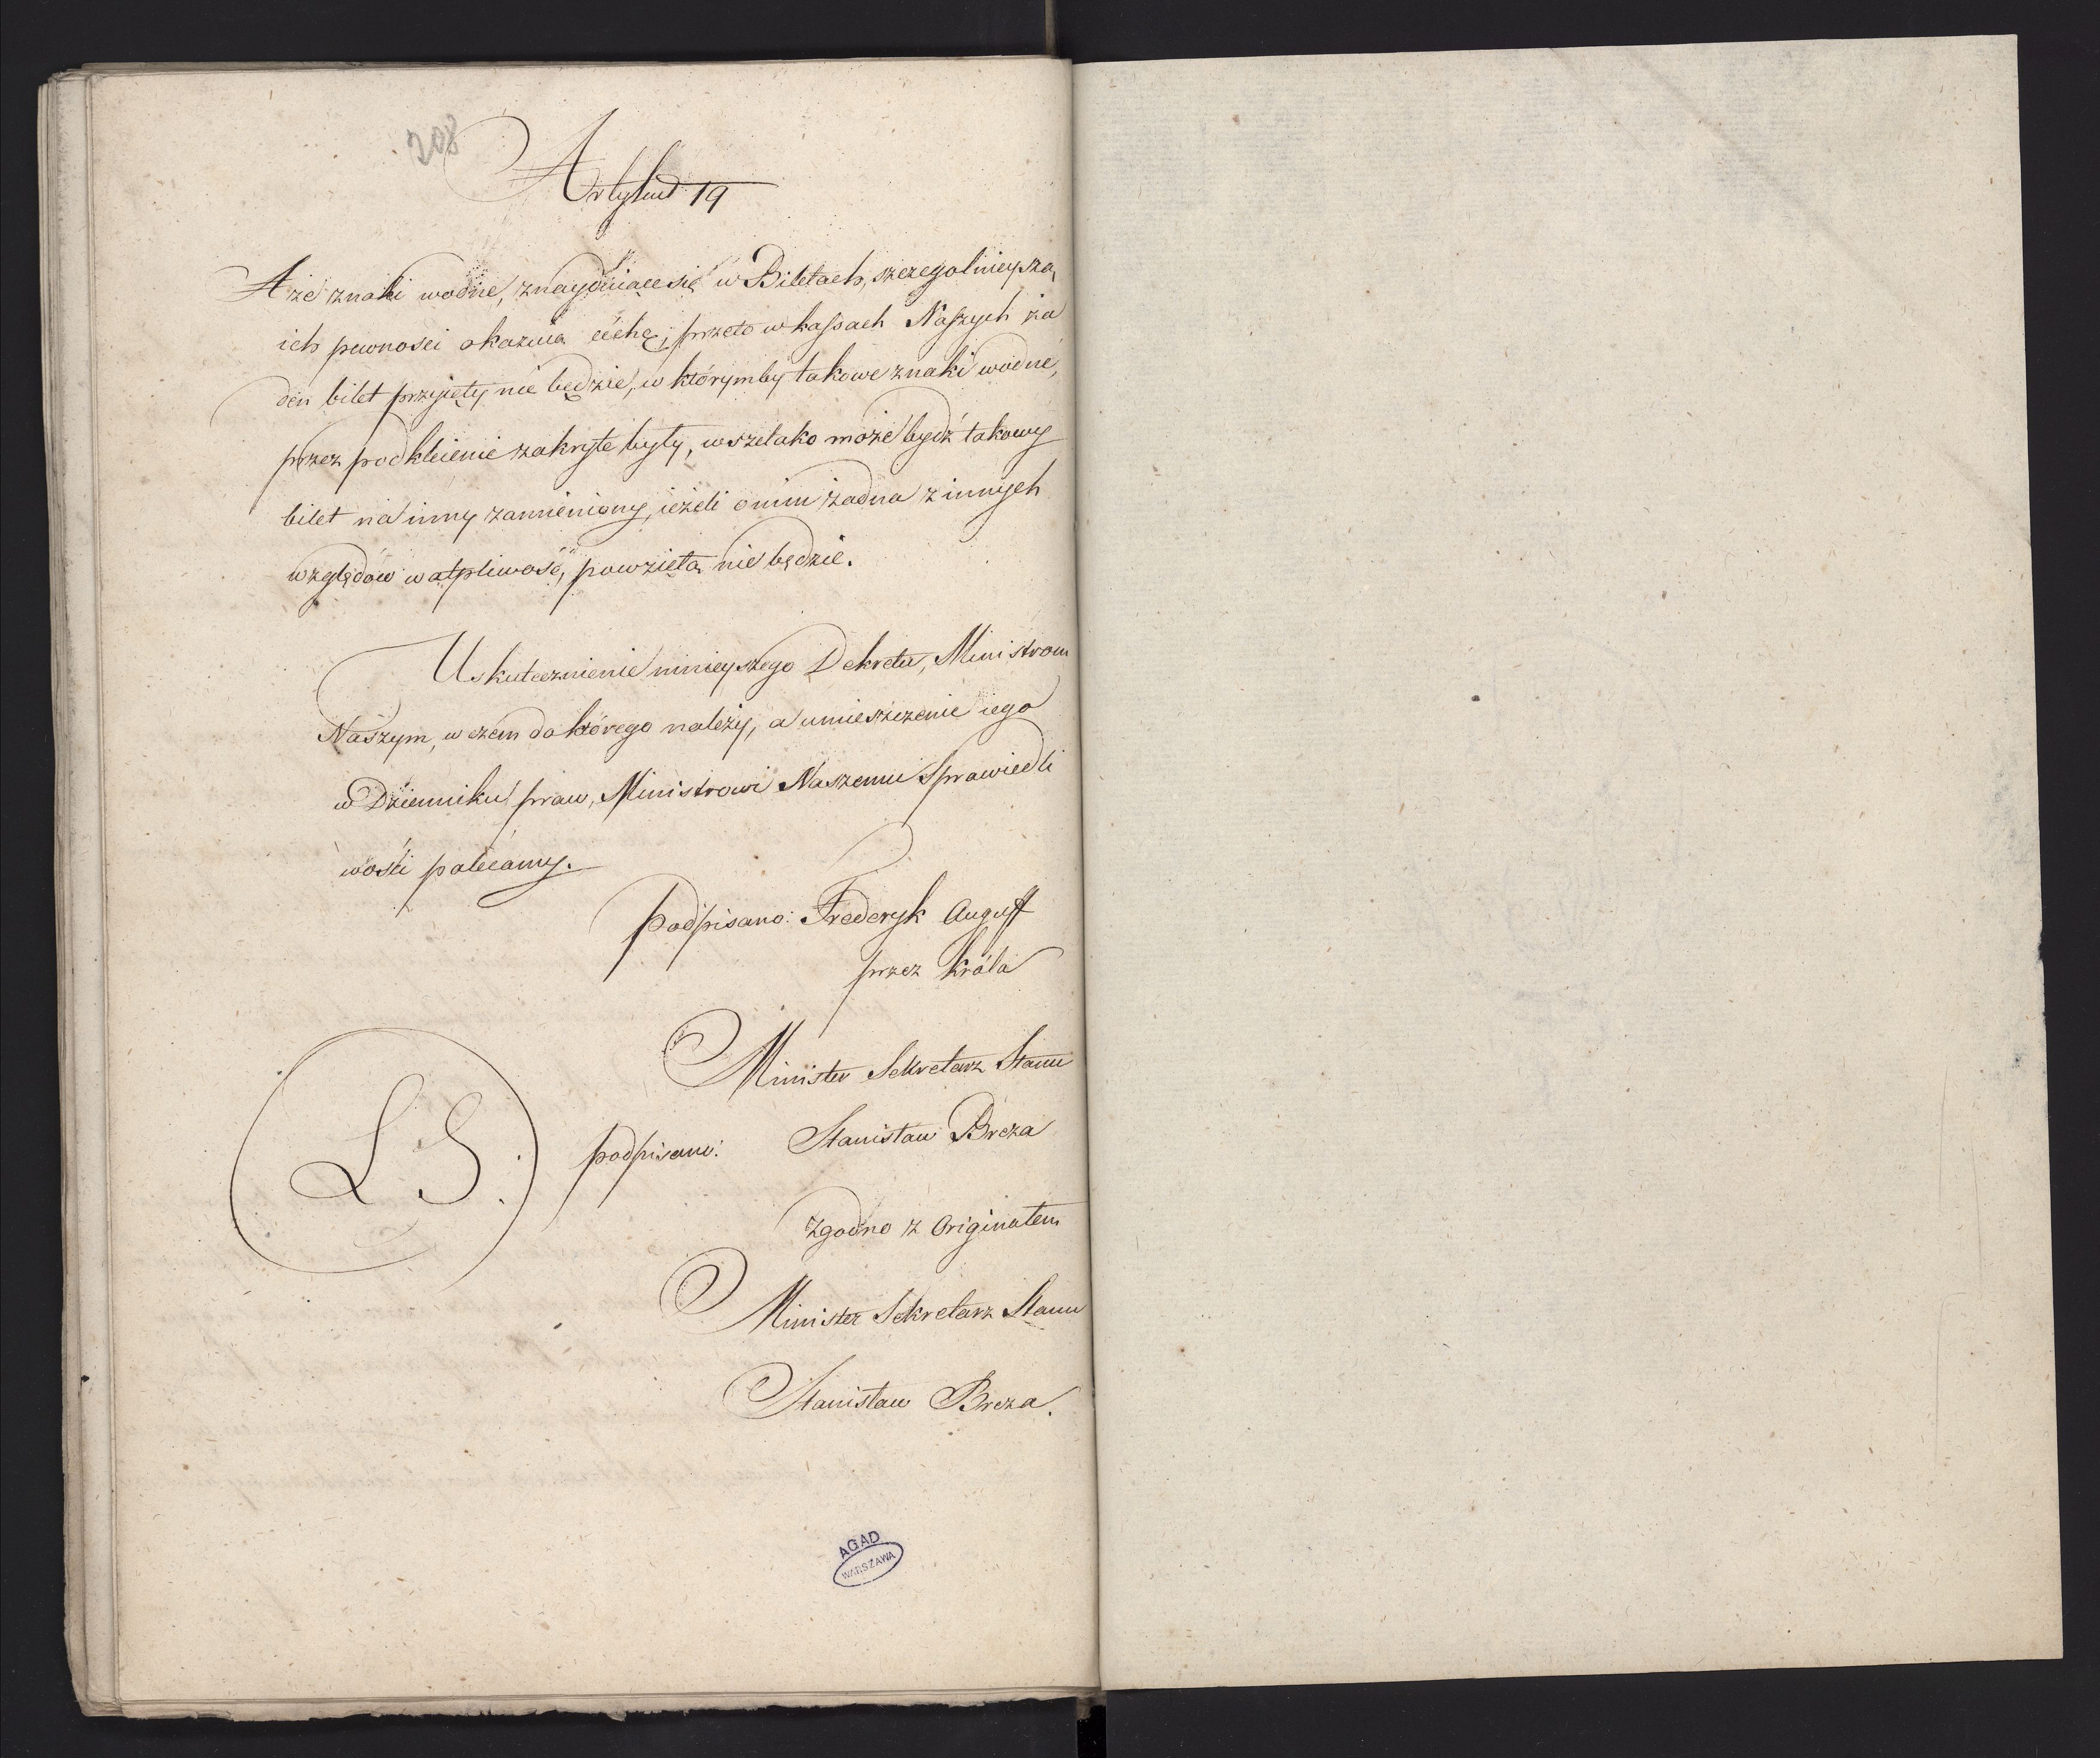 208
Artykuł 19
A że znaki wodne, znayduiące się w Biletach, szczegolnieyszą
ich pewnosci okazuią cechę, przeto w kassach Naszych ża
den bilet przyięty nie będzie, w którymby takowe znaki wodne,
przez podkleienie zakryte były, wszelako może bydź takowy
bilet na inny zamieniony, ieżeli o nim żadna z innych
względów wątpliwość, powzięta nie będzie.
Uskutecznienie ninieyszego Dekretu, Ministrom
Naszym, w czem do którego należy, a umieszczenie iego
w Dzienniku praw, Ministrowi Naszemu Sprawiedli
wości polecamy.
Podpisano: Frederyk August
przez Króla
Minister Sekretarz Stanu
L. S.
podpisano: Stanisław Breza
Zgodno z Originałem
Minister Sekretarz Stanu
Stanisław Breza.
AGAD
WARSZAWA